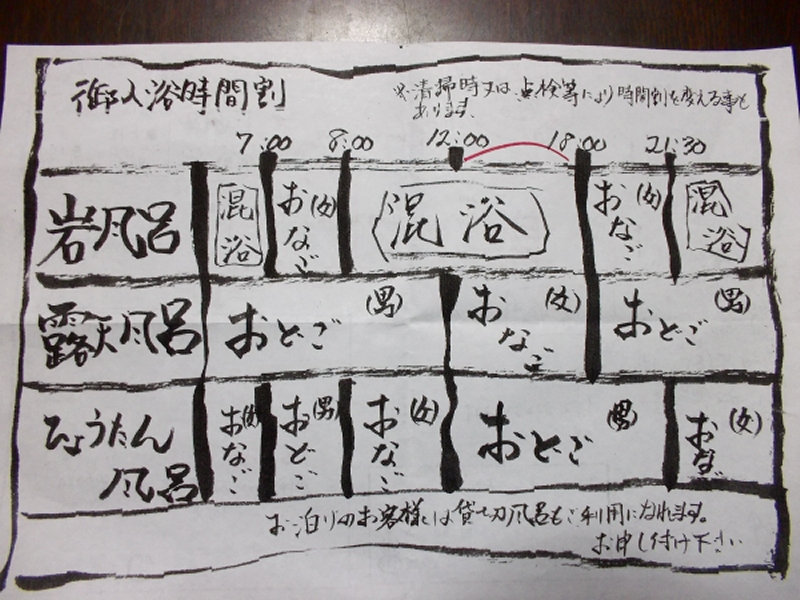 御入浴時間割
※清掃時又は点検等により時間割を変える事も
あります。
7:00 8:00 12:00 18:00 21:30
岩風呂 混浴 おなご(女) 混浴 おなご(女) 混浴
露天風呂 おとご(男) おなご(女) おとご(男)
ひょうたん風呂 おなご(女) おとご(男) おなご(女) おとご(男) おなご(女)
お泊りのお客様は貸切風呂もご利用になれます。
お申し付け下さい